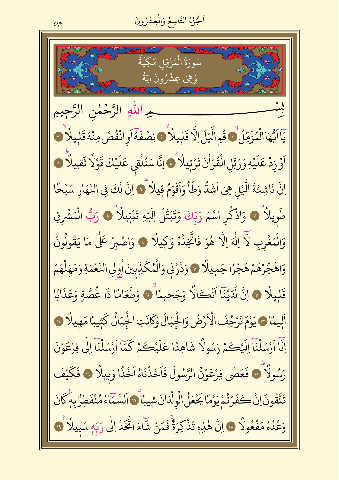 اَلْجُزْءُ التَّاسِعُ وَالْعِشْرُونَ
سُورَةُ الْمُزَّمِّلِ مَكِّيَّةٌ
وَهِىَ عِشْرُونَ اٰيَةً
بِسْمِ اللّٰهِ الرَّحْمٰنِ الرَّحِيمِ
يَٓا اَيُّهَا الْمُزَّمِّلُۙ ﴿١﴾ قُمِ الَّيْلَ اِلَّا قَلِيلًاۙ ﴿٢﴾ نِصْفَهُٓ اَوِ انْقُصْ مِنْهُ قَلِيلًاۙ ﴿٣﴾
اَوْ زِدْ عَلَيْهِ وَرَتِّلِ الْقُرْاٰنَ تَرْتِيلًاۜ ﴿٤﴾ اِنَّا سَنُلْقِى عَلَيْكَ قَوْلًا ثَقِيلًا ﴿٥﴾
اِنَّ نَاشِئَةَ الَّيْلِ هِىَ اَشَدُّ وَطْـًٔا وَاَقْوَمُ قِيلًاۜ ﴿٦﴾ اِنَّ لَكَ فِى النَّهَارِ سَبْحًا
طَوِيلًاۜ ﴿٧﴾ وَاذْكُرِ اسْمَ رَبِّكَ وَتَبَتَّلْ اِلَيْهِ تَبْتِيلًاۜ ﴿٨﴾ رَبُّ الْمَشْرِقِ
وَالْمَغْرِبِ لَٓا اِلٰهَ اِلَّا هُوَ فَاتَّخِذْهُ وَكِيلًا ﴿٩﴾ وَاصْبِرْ عَلٰى مَا يَقُولُونَ
وَاهْجُرْهُمْ هَجْرًا جَمِيلًا ﴿١٠﴾ وَذَرْنِى وَالْمُكَذِّبِينَ اُو۬لِى النَّعْمَةِ وَمَهِّلْهُمْ
قَلِيلًا ﴿١١﴾ اِنَّ لَدَيْنَٓا اَنْكَالًا وَجَحِيمًاۙ ﴿١٢﴾ وَطَعَامًا ذَا غُصَّةٍ وَعَذَابًا
اَلِيمًا ﴿١٣﴾ يَوْمَ تَرْجُفُ الْاَرْضُ وَالْجِبَالُ وَكَانَتِ الْجِبَالُ كَثِيبًا مَهِيلًا ﴿١٤﴾
اِنَّٓا اَرْسَلْنَٓا اِلَيْكُمْ رَسُولًا شَاهِدًا عَلَيْكُمْ كَمَٓا اَرْسَلْنَٓا اِلٰى فِرْعَوْنَ
رَسُولًاۜ ﴿١٥﴾ فَعَصٰى فِرْعَوْنُ الرَّسُولَ فَاَخَذْنَاهُ اَخْذًا وَبِيلًا ﴿١٦﴾ فَكَيْفَ
تَتَّقُونَ اِنْ كَفَرْتُمْ يَوْمًا يَجْعَلُ الْوِلْدَانَ شِيبًاۗ ﴿١٧﴾ اَلسَّمَٓاءُ مُنْفَطِرٌ بِهِۜ كَانَ
وَعْدُهُ مَفْعُولًا ﴿١٨﴾ اِنَّ هٰذِهِ تَذْكِرَةٌۚ فَمَنْ شَٓاءَ اتَّخَذَ اِلٰى رَبِّهِ سَبِيلًا۟ ﴿١٩﴾